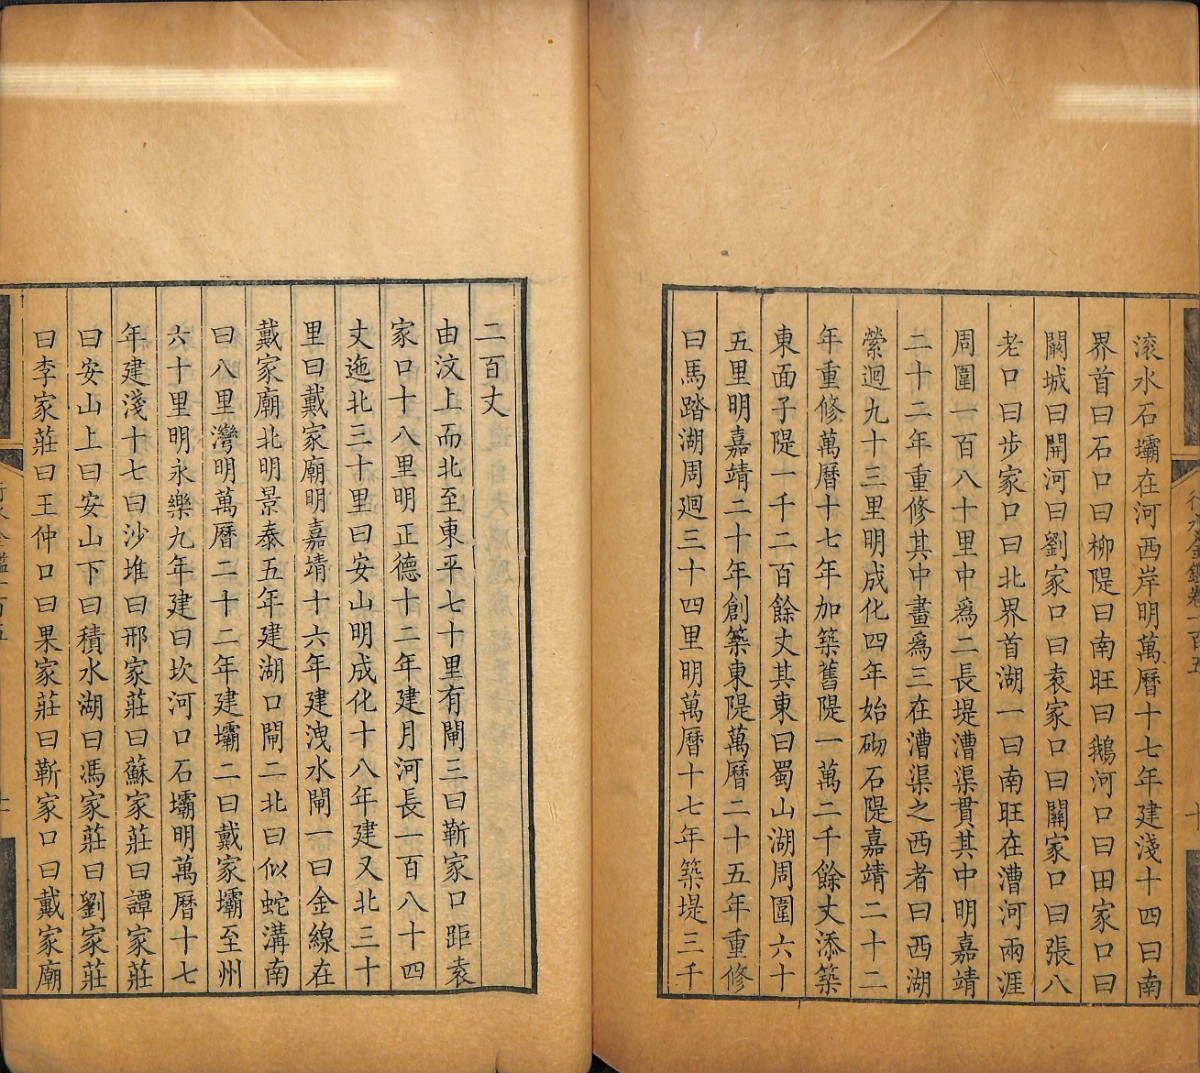 滾水石壩在河西岸明萬曆十七年建淺十四曰南
界首曰石口曰柳隄曰南旺曰鵝河口曰田家口曰
闞城曰開河曰劉家口曰袁家口曰關家口曰張八
老口曰步家口曰北界首湖一曰南旺在漕河兩涯
周圍一百八十里中爲二長堤漕渠貫其中明嘉靖
二十二年重修其中畫爲三在漕渠之西者曰西湖
縈迴九十三里明成化四年始砌石隄嘉靖二十二
年重修萬曆十七年加築舊隄一萬二千餘丈添築
東面子隄一千二百餘丈其東曰蜀山湖周圍六十
五里明嘉靖二十年創築東隄萬曆二十五年重修
曰馬踏湖周迴三十四里明萬曆十七年築堤三千
二百丈
由汶上而北至東平七十里有閘三曰靳家口距袁
家口十八里明正德十二年建月河長一百八十四
丈迤北三十里曰安山明成化十八年建又北三十
里曰戴家廟明嘉靖十六年建洩水閘一曰金線在
戴家廟北明景泰五年建湖口閘二北曰似蛇溝南
曰八里灣明萬曆二十二年建壩二曰戴家壩至州
六十里明永樂九年建曰坎河口石壩明萬曆十七
年建淺十七曰沙堆曰邢家莊曰蘇家莊曰譚家莊
曰安山上曰安山下曰積水湖曰馮家莊曰劉家莊
曰李家莊曰王仲口曰果家莊曰靳家口曰戴家廟